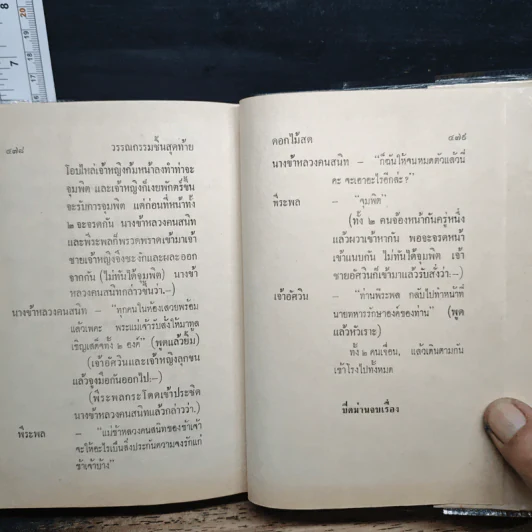 ๔๗๘ วรรณกรรมชิ้นสุดท้าย
โอบไหล่เจ้าหญิงก้มหน้าลงทำท่าจะ
จุมพิต และเจ้าหญิงก็เงยพักตร์ขึ้น
จะรับการจุมพิต แต่ก่อนที่หน้าทั้ง
๒ จะจรดกัน นางข้าหลวงคนสนิท
และพีระพลก็พรวดพราดเข้ามาเจ้า
ชายเจ้าหญิงจึงชะงักและผละออก
จากกัน (ไม่ทันได้จุมพิต) นางข้า
หลวงคนสนิทกล่าวขึ้นว่า.—)
นางข้าหลวงคนสนิท — "ทุกคนในห้องเสวยพร้อม
แล้วเพคะ พระแม่เจ้ารับสั่งให้มาทูล
เชิญเสด็จทั้ง ๒ องค์" (พูดแล้วยิ้ม)
(เจ้าอัศวินและเจ้าหญิงลุกขึ้น
แล้วจูงมือกันออกไป:—)
(พีระพลกระโดดเข้าประชิด
นางข้าหลวงคนสนิทแล้วกล่าวว่า.)
พีระพล — "แม่ข้าหลวงคนสนิทของข้าเจ้า
จะให้อะไรเป็นสิ่งประกันความจงรักแก่
ข้าเจ้าบ้าง"
ดอกไม้สด ๔๗๙
นางข้าหลวงคนสนิท — "ก็ฉันให้จนหมดตัวแล้วนี่
คะ จะเอาอะไรอีกล่ะ?"
พีระพล — "จุมพิต"
(ทั้ง ๒ คนจ้องหน้ากันครู่หนึ่ง
แล้วผวาเข้าหากัน พอจะจรดหน้า
เข้าแนบกัน ไม่ทันได้จุมพิต เจ้า
ชายอัศวินก็เข้ามาแล้วรับสั่งว่า:—)
เจ้าอัศวิน — "ท่านพีระพล กลับไปทำหน้าที่
นายทหารรักษาองค์ของท่าน" (พูด
แล้วหัวเราะ)
ทั้ง ๒ คนเขื่อน, แล้วเดินตามกัน
เข้าโรงไปทั้งหมด
ปิดม่านจบเรื่อง